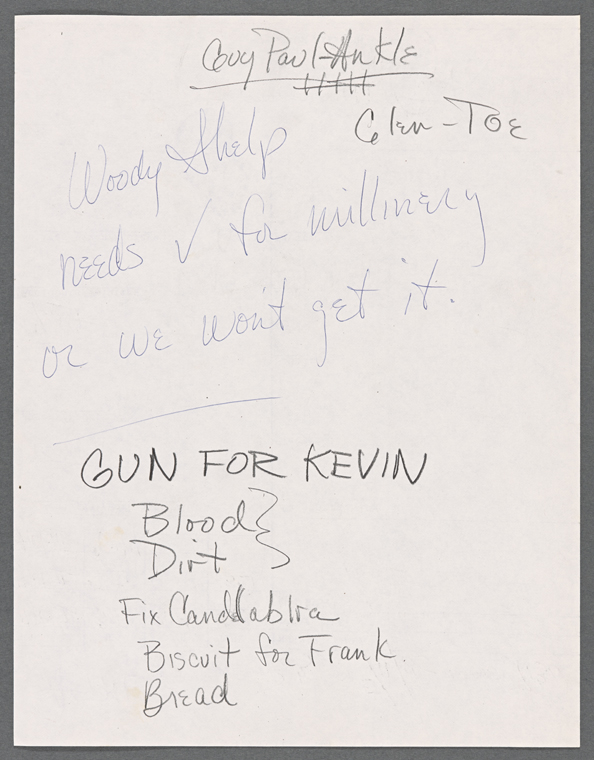 Guy Paul-Ankle
Glen-Toe
Woody Shelp
needs ✓ for millinery
or we won't get it.
GUN FOR KEVIN
Blood
Dirt
Fix Candelabra
Biscuit for Frank.
Bread